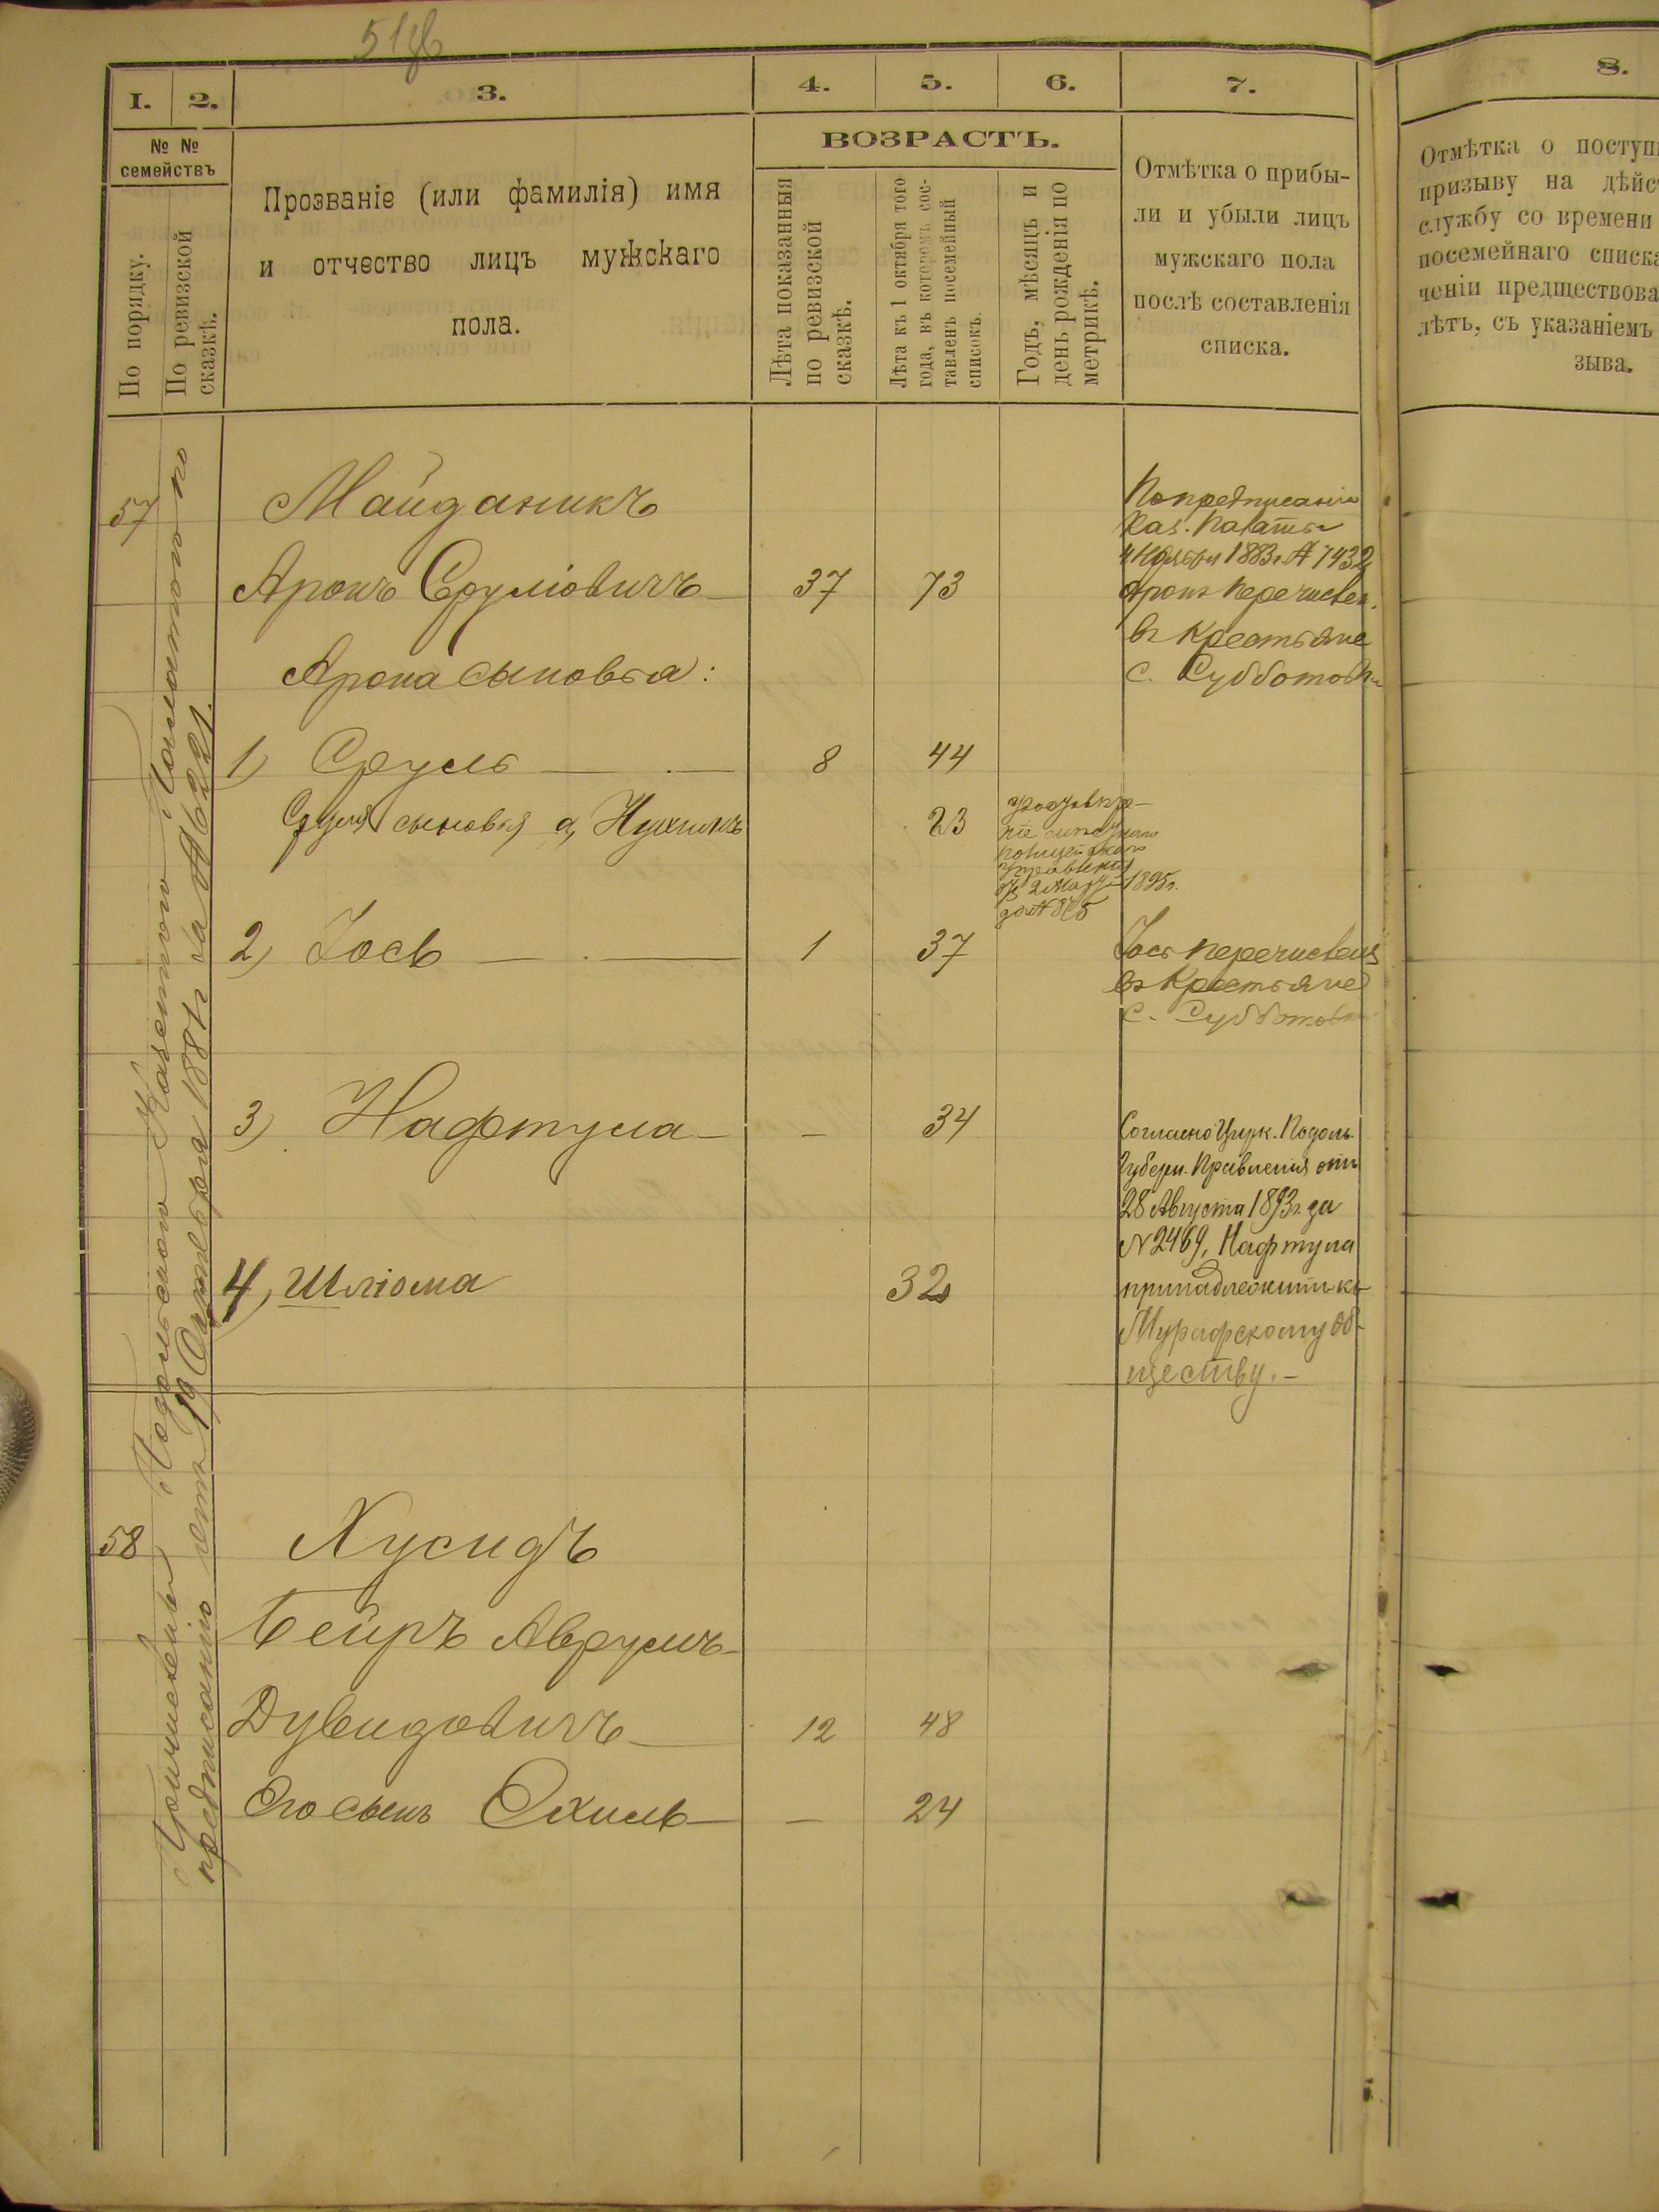 I.
2.
3.
4.
5.
6.
7.
8.
№ №
семействъ
По порядку.
По ревизской
сказкѣ.
Прозваніе (или фамилія) имя
и отчество лицъ мужскаго
пола.
ВОЗРАСТЪ.
Лѣта показанныя
по ревизской
сказкѣ.
Лѣта къ 1 октября того
года, въ которомъ сос-
тавленъ посемейный
списокъ.
Годъ, мѣсяцъ и
день рожденія по
метрикѣ.
Отмѣтка о прибы-
ли и убыли лицъ
мужскаго пола
послѣ составленія
списка.
Отмѣтка о поступ
призыву на дѣйс
службу со времени
посемейнаго списка
ченіи предшествова
лѣтъ, съ указаніемъ
зыва.
57
Майданикъ
Аронъ Сруліовичъ 37 73
Арона сыновья:
1) Сруль 8 44
Сруля сыновья а, Нухимъ 23
2) Іось 1 37
3) Нафтула — 34
4) Шліома 32
По предписанію
Каз. Палаты
4 Ноября 1883 г. № 7432
Аронъ перечислен.
въ крестьяне
с. Субботовки
полицейскаго
управленія
1895 г.
Іось перечисленъ
въ крестьяне
с. Субботовки
Согласно Цирк. Подоль.
Губерн. Правленія отъ
28 Августа 1893 г. за
№ 2469, Нафтула
принадлежитъ къ
Мурафскому об-
ществу.—
58
Хусидъ
Бейръ Аврумъ
Дувидовичъ 12 48
Его сынъ Схиль — 24
Причислены Подольскою Казенною Палатою по
предписанію отъ 19 Октября 1881 г. за № 6221.